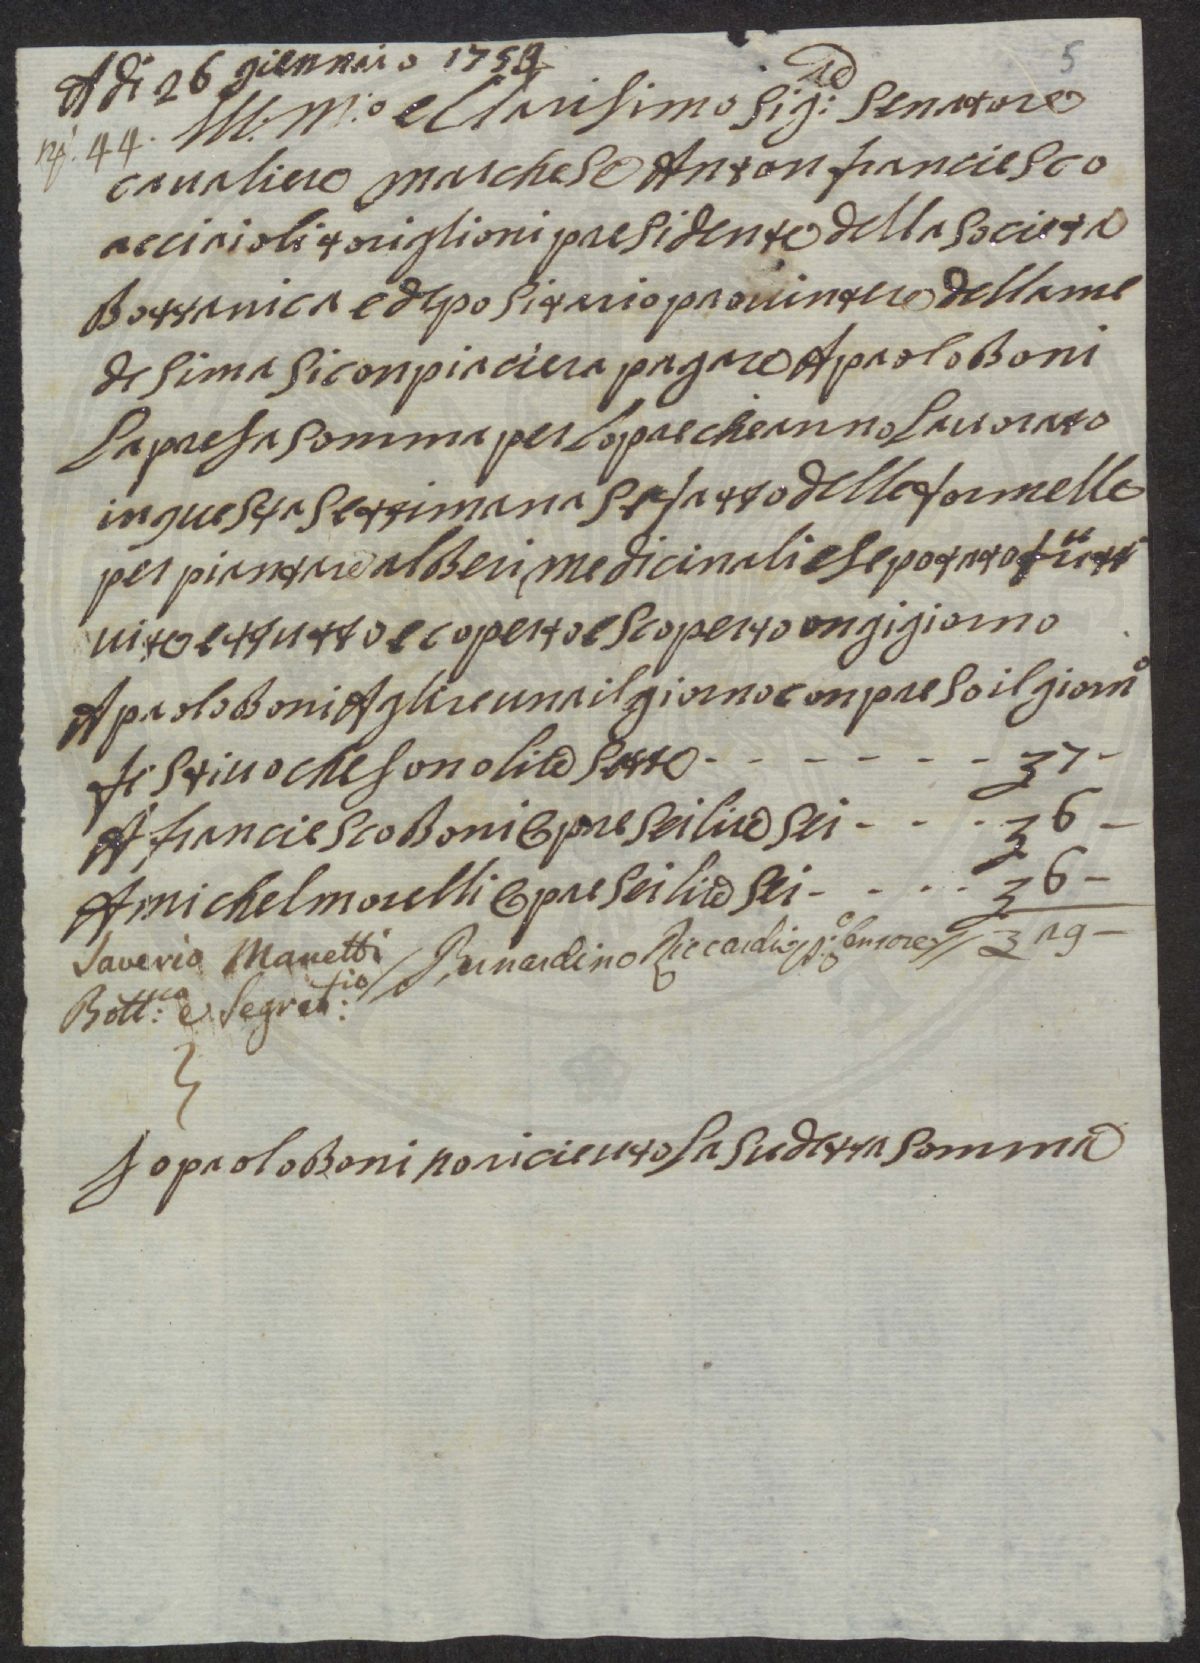 Adi 26 giennaio 175
5
np. 44. Ill:mo e Clarisimo Sig:re Senatore
caualiere marchese Anton franciesco
acciaioli toriglioni presidente della Societa
Bottanica e depositario prouintere della me
desima Si conpiaciera pagare A paolo Boni
La presa Somma per Lopre che anno Lauorato
in questa Settimana Se fatto delle formelle
per piantare alberi medicinali e Se potato
uite ettutto e coperto e Scoperto ongi giorno
A paolo Boni A glire una il giorno conpreso il giorno
festiuo che Sono lire Sette - - - - - - - 7 -
A franciesco Boni opre Sei lire Sei - - - - 6 -
A michel morelli opre Sei lire Sei - - - - 6 -
Saverio Manetti / Bernardino Riccardi Pro: Censore // 19 -
Bott:co e Segret:rio
Jo paolo Boni ho riceuto La Sudetta Somma